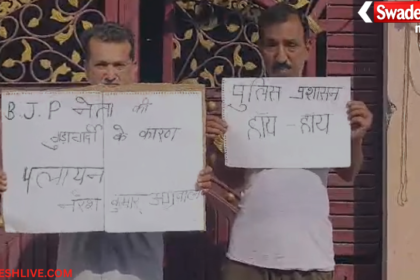 Swade
B.J.P नेता की
गुंडागर्दी के कारण
पलायन
कुमार अग्रवाल
पुलिस प्रशासन
हाय - हाय
ESHLIVE.COM